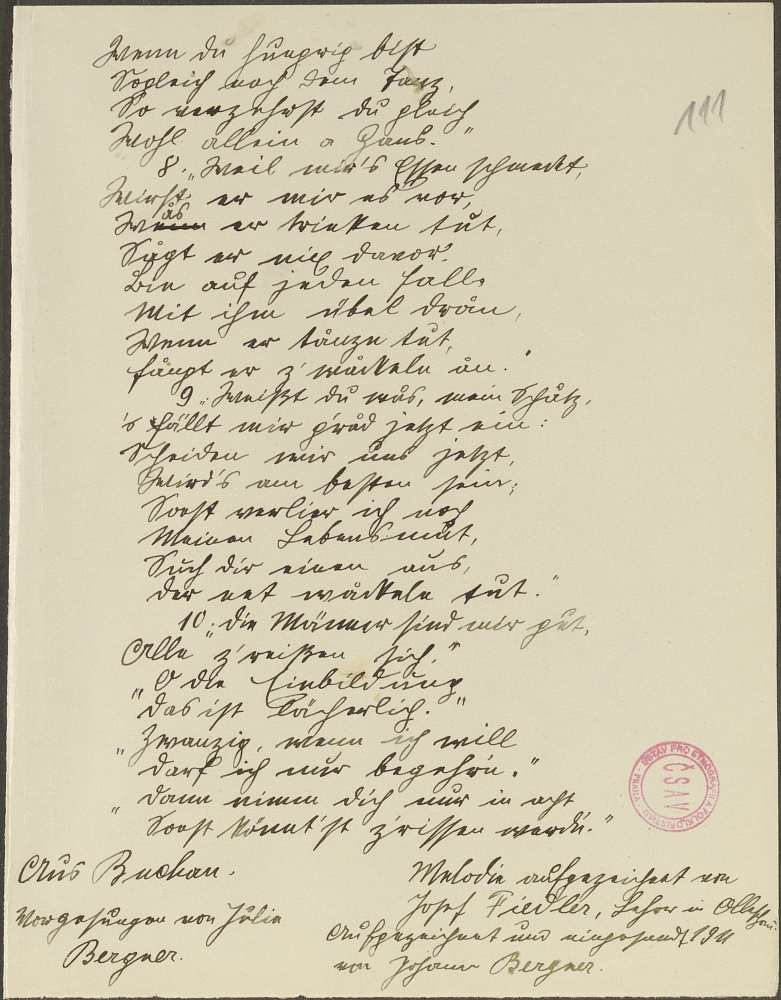 Wenn du hungrig bist
Sogleich nach dem Tanz,
So verzehrst du gleich
Wohl allein a Gans."
111
8. „Weil mir's Essen schmeckt,
Wirft er mir es vor,
Wås er trinken tut,
Sågt er nix davor.
Bin auf jeden Fall
Mit ihm übel drån,
Wenn er tånzn tut,
Fångt er z' wåckeln ån."
9. „Weißt du wås, mein Schåtz,
's fällt mir g'råd jetzt ein:
Scheiden wir uns jetzt,
Wird's am besten sein;
Sonst verlier ich noch
Meinen Lebensmut,
Such dir einen aus,
Der net wåckeln tut."
10. „Die Männer sind mir gut,
Alle z'reißen sich."
„O die Einbildung
Das ist lächerlich."
„Zwanzig, wenn ich will
Darf ich nur begehr'n."
„Dann nimm dich nur in acht
Sonst könnt'st z'rissen werd'n."
ÚSTAV PRO ETNOGRAFII A FOLKLORISTIKU
ČSAV
PRAHA
Aus Buchau.
Vorgesungen von Julie
Bergner.
Melodie aufgezeichnet von
Josef Fiedler, Lehrer in
Aufgezeichnet und eingesandt 1911
von Johann Bergner.